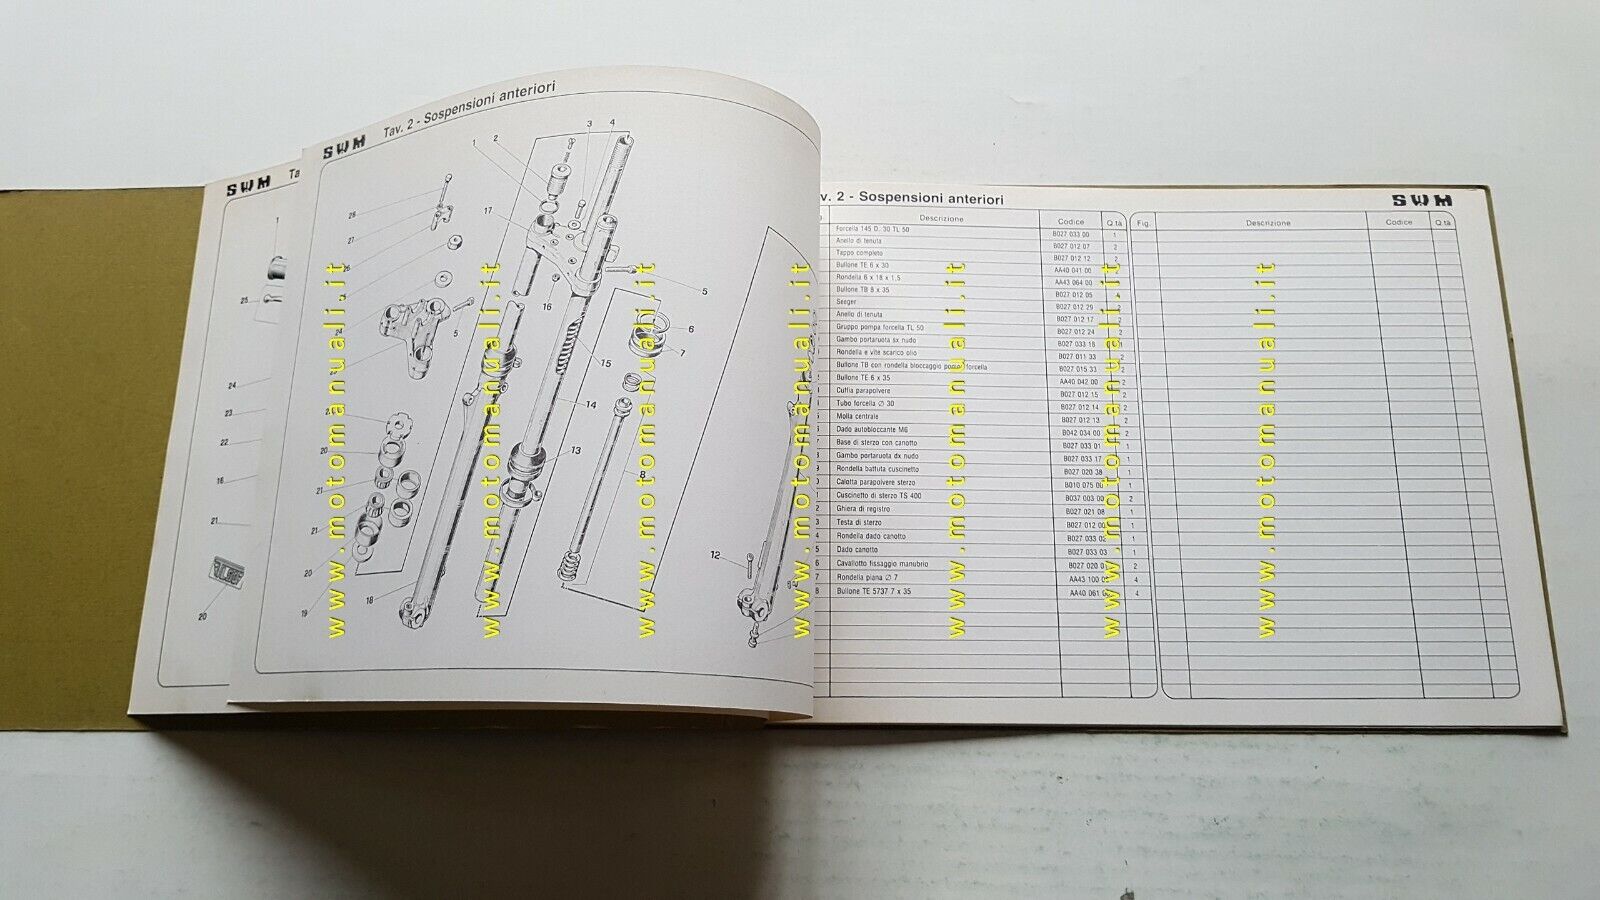 SWM Ta
1
25
24
23
22
16
21
20
SWM Tav. 2 - Sospensioni anteriori
1
2
3
4
17
5
6
7
16
15
14
13
8
12
26
27
5
20
21
21
20
19
18
v. 2 - Sospensioni anteriori SWM
Descrizione Codice Q.tà Fig. Descrizione Codice Q.tà
Forcella 145 D. 30 TL 50 B027 033 00 1
Anello di tenuta B027 012 07 2
Tappo completo B027 012 12 2
Bullone TE 6 x 30 AA40 041 00
Rondella 6 x 18 x 1,5 AA43 064 00
Bullone TB 8 x 35 B027 012 05 4
Seeger B027 012 29 2
Anello di tenuta B027 012 17 2
Gruppo pompa forcella TL 50 B027 012 24 2
Gambo portaruota sx nudo B027 033 18 1
Rondella e vite scarico olio B027 011 33 2
Bullone TB con rondella bloccaggio forcella B027 015 33 2
Bullone TE 6 x 35 AA40 042 00 2
Cuffia parapolvere B027 012 15 2
Tubo forcella ∅ 30 B027 012 14 2
Molla centrale B027 012 13 2
Dado autobloccante M6 B042 034 00 2
7 Base di sterzo con canotto B027 033 01 1
8 Gambo portaruota dx nudo B027 033 17 1
9 Rondella battuta cuscinetto B027 020 38 1
0 Calotta parapolvere sterzo B010 075 00 1
1 Cuscinetto di sterzo TS 400 B037 003 00 2
2 Ghiera di registro B027 021 08 1
3 Testa di sterzo B027 012 00 1
4 Rondella dado canotto B027 033 02 1
5 Dado canotto B027 033 03 1
6 Cavallotto fissaggio manubrio B027 020 0 2
7 Rondella piana ∅ 7 AA43 100 4
8 Bullone TE 5737 7 x 35 AA40 061 4
www.motomanuali.it
www.motomanuali.it
www.motomanuali.it
www.motomanuali.it
www.motomanuali.it
www.motomanuali.it
www.motomanuali.it